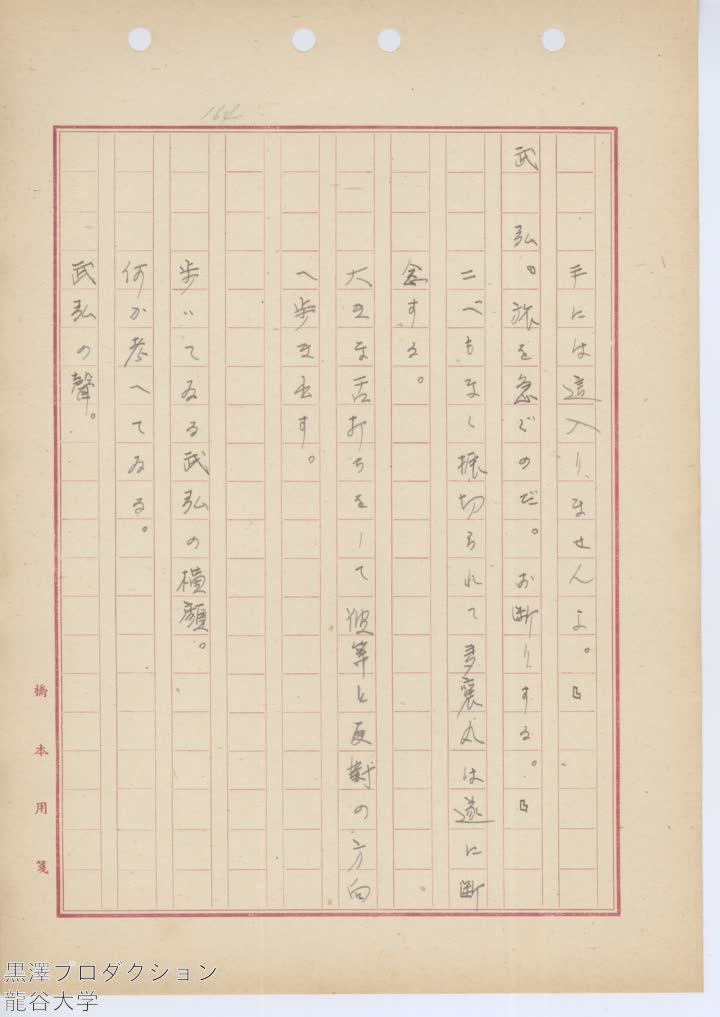 164
手には這入りませんよ。』
武弘『旅を急ぐのだ。お断りする。』
ニべもなく振切られて多襄丸は遂に断
念する。
大きな舌打ちをして彼等と反對の方向
へ歩き出す。
歩いてゐる武弘の横顔。
何か考へてゐる。
武弘の聲。
橋本用箋
黒澤プロダクション
龍谷大学